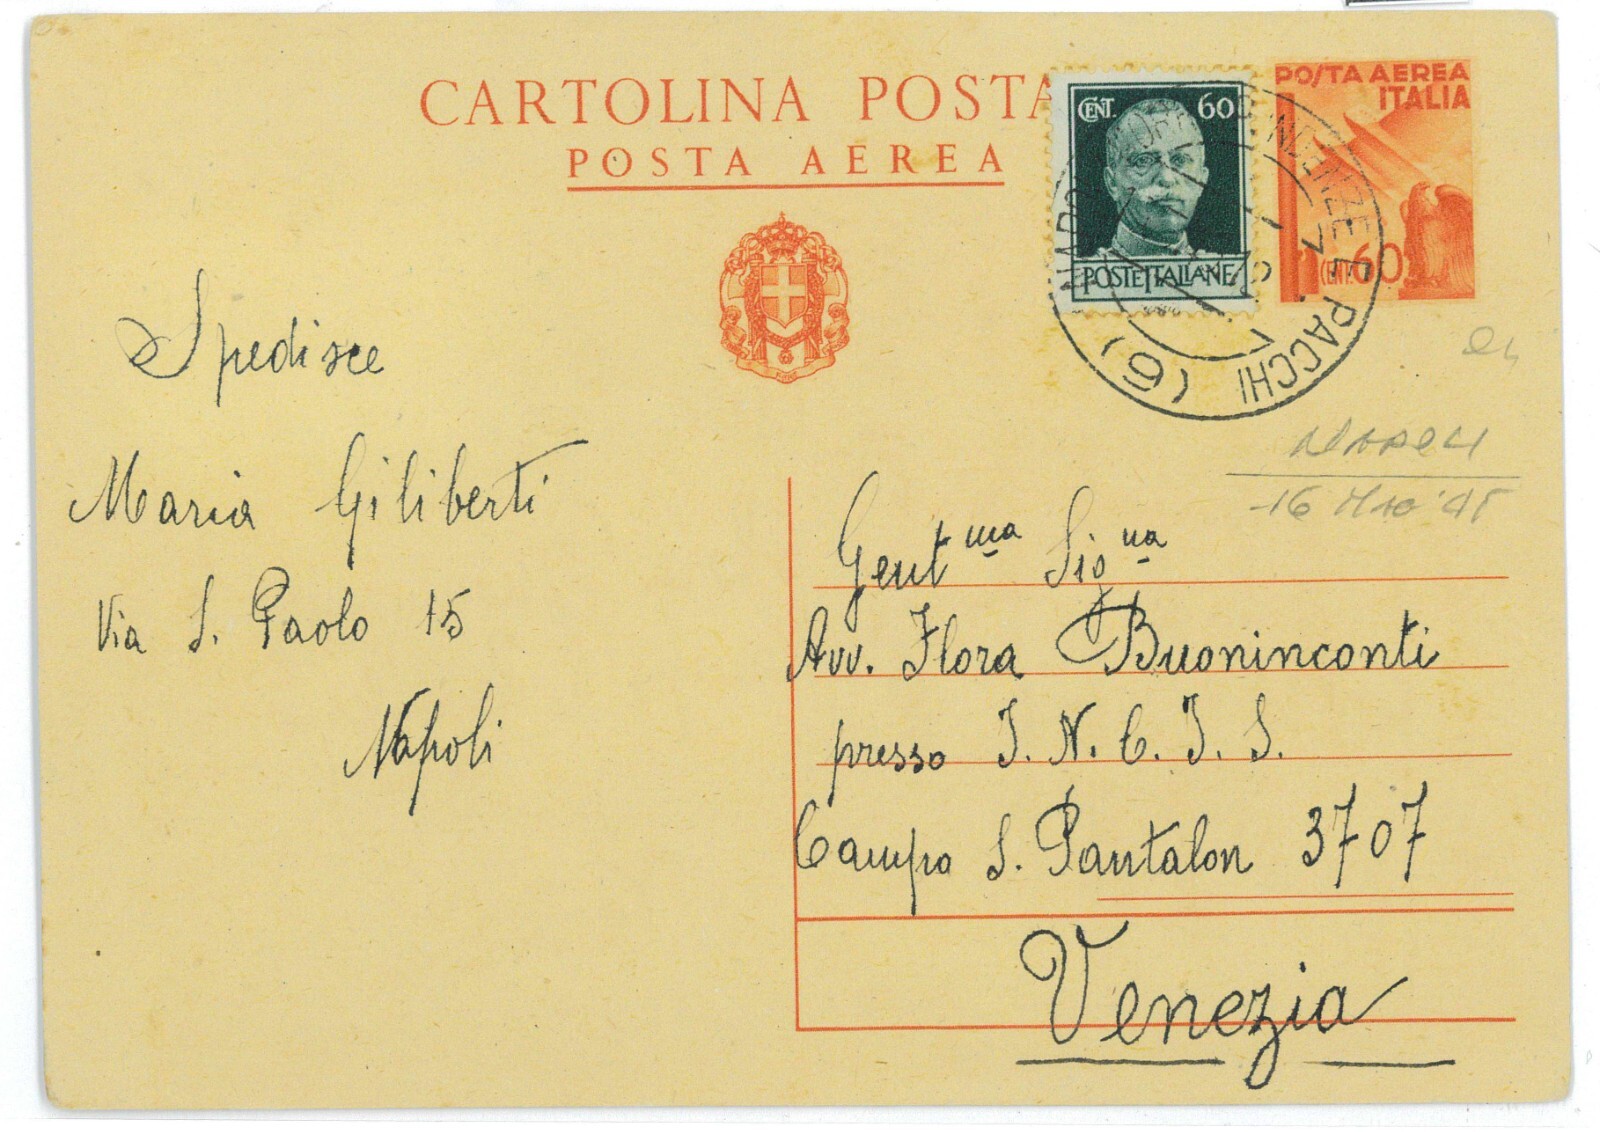 CARTOLINA POSTA
POSTA AEREA
CENT. 60
POSTE ITALIANE
POSTA AEREA
ITALIA
CENT. 60
PACCHI (6)
NAPOLI
Spedisce
Maria Giliberti
Via S. Paolo 15
Napoli
Gent ma Sig na
Avv. Flora Buoninconti
presso I. N. C. I. S.
Campo S. Pantalon 3707
Venezia